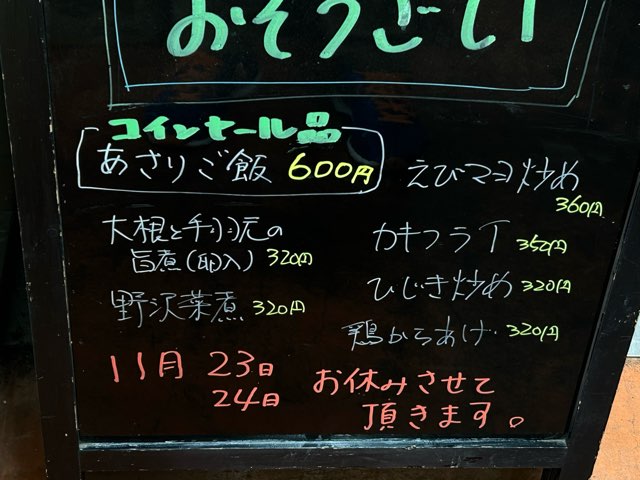 おそうざい
コインセール品
あさりご飯 600円
えびマヨ炒め
360円
大根と手羽元の
旨煮(卵入) 320円
カキフライ 350円
ひじき炒め 320円
野沢菜煮 320円
鶏からあげ 320円
11月 23日
24日
お休みさせて
頂きます。